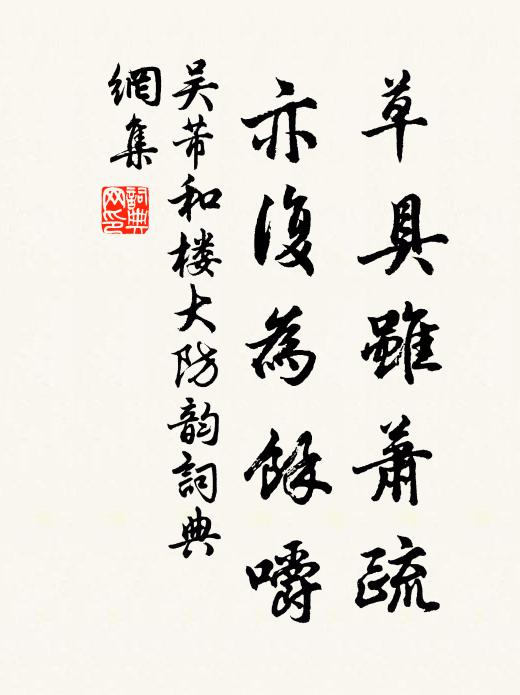 草具雖蕭疏
亦復為餘嚼
吴芾和楼大防韵詞典
網集
詞典
网印